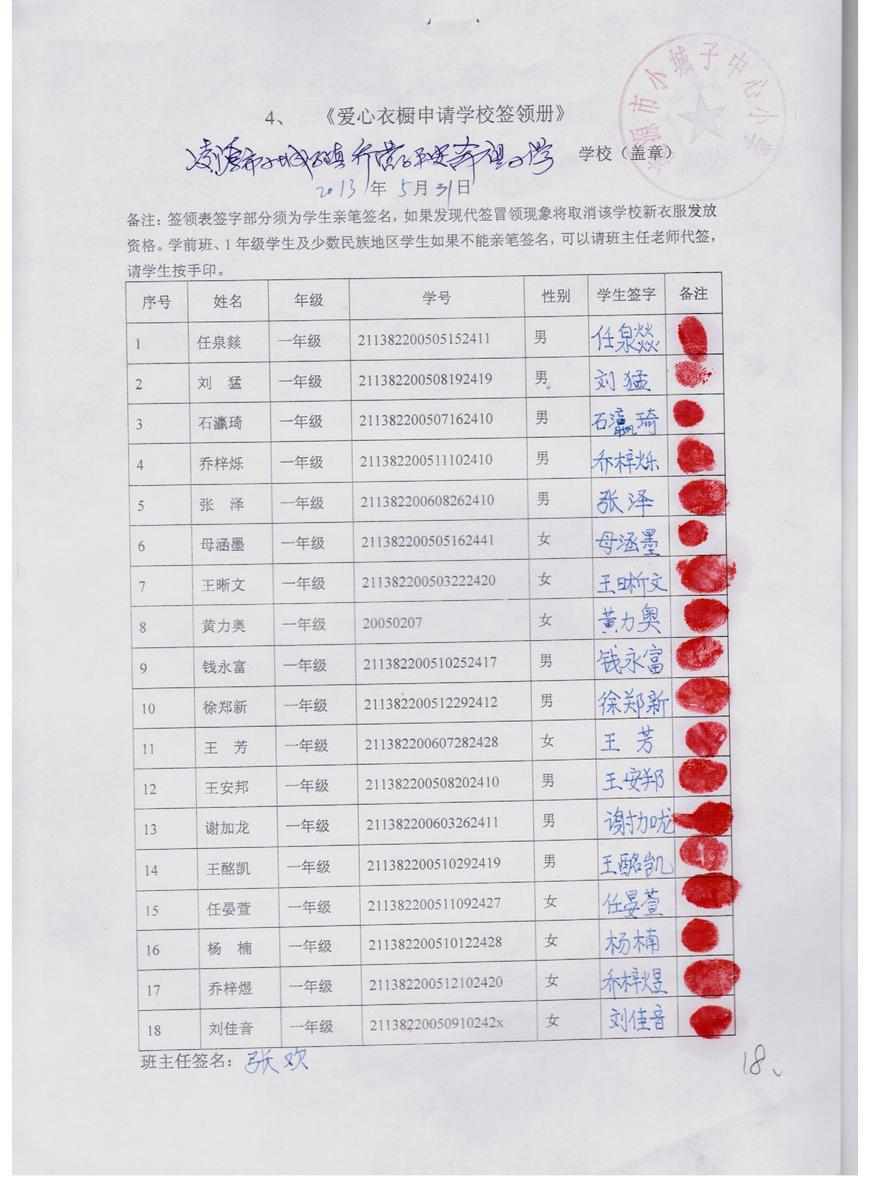 凌源市小城子中心小学
4、 《爱心衣橱申请学校签领册》
凌源市小城子镇乔营子平安希望小学 学校（盖章）
2013年5月31日
备注：签领表签字部分须为学生亲笔签名，如果发现代签冒领现象将取消该学校新衣服发放
资格。学前班、1年级学生及少数民族地区学生如果不能亲笔签名，可以请班主任老师代签，
请学生按手印。
序号 姓名 年级 学号 性别 学生签字 备注
1 任泉燚 一年级 211382200505152411 男 任泉燚
2 刘 猛 一年级 211382200508192419 男 刘猛
3 石瀛琦 一年级 211382200507162410 男 石瀛琦
4 乔梓烁 一年级 211382200511102410 男 乔梓烁
5 张 泽 一年级 211382200608262410 男 张泽
6 母涵墨 一年级 211382200505162441 女 母涵墨
7 王晰文 一年级 211382200503222420 女 王晰文
8 黄力奥 一年级 20050207 女 黄力奥
9 钱永富 一年级 211382200510252417 男 钱永富
10 徐郑新 一年级 211382200512292412 男 徐郑新
11 王 芳 一年级 211382200607282428 女 王 芳
12 王安邦 一年级 211382200508202410 男 王安邦
13 谢加龙 一年级 211382200603262411 男 谢加咙
14 王酩凯 一年级 211382200510292419 男 王酩凯
15 任晏萱 一年级 211382200511092427 女 任晏萱
16 杨 楠 一年级 211382200510122428 女 杨楠
17 乔梓煜 一年级 211382200512102420 女 乔梓煜
18 刘佳音 一年级 21138220050910242x 女 刘佳音
班主任签名：张欢
18、